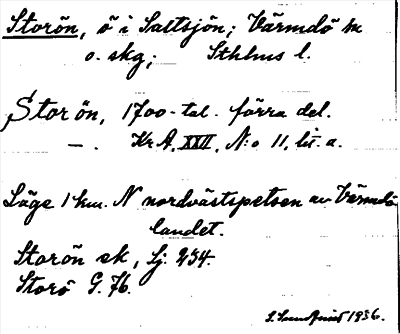 Storön, ö i Saltsjön; Värmdö hd
o. skg; Sthlms l.
Storön, 1700-tal. förra del.
—. Kr A, XXII, N:o 11, lit. a.
Läge 1 km. N nordvästspetsen av Värmdö
landet.
Storön ek, Lj. 234.
Storö G. 76.
1936.